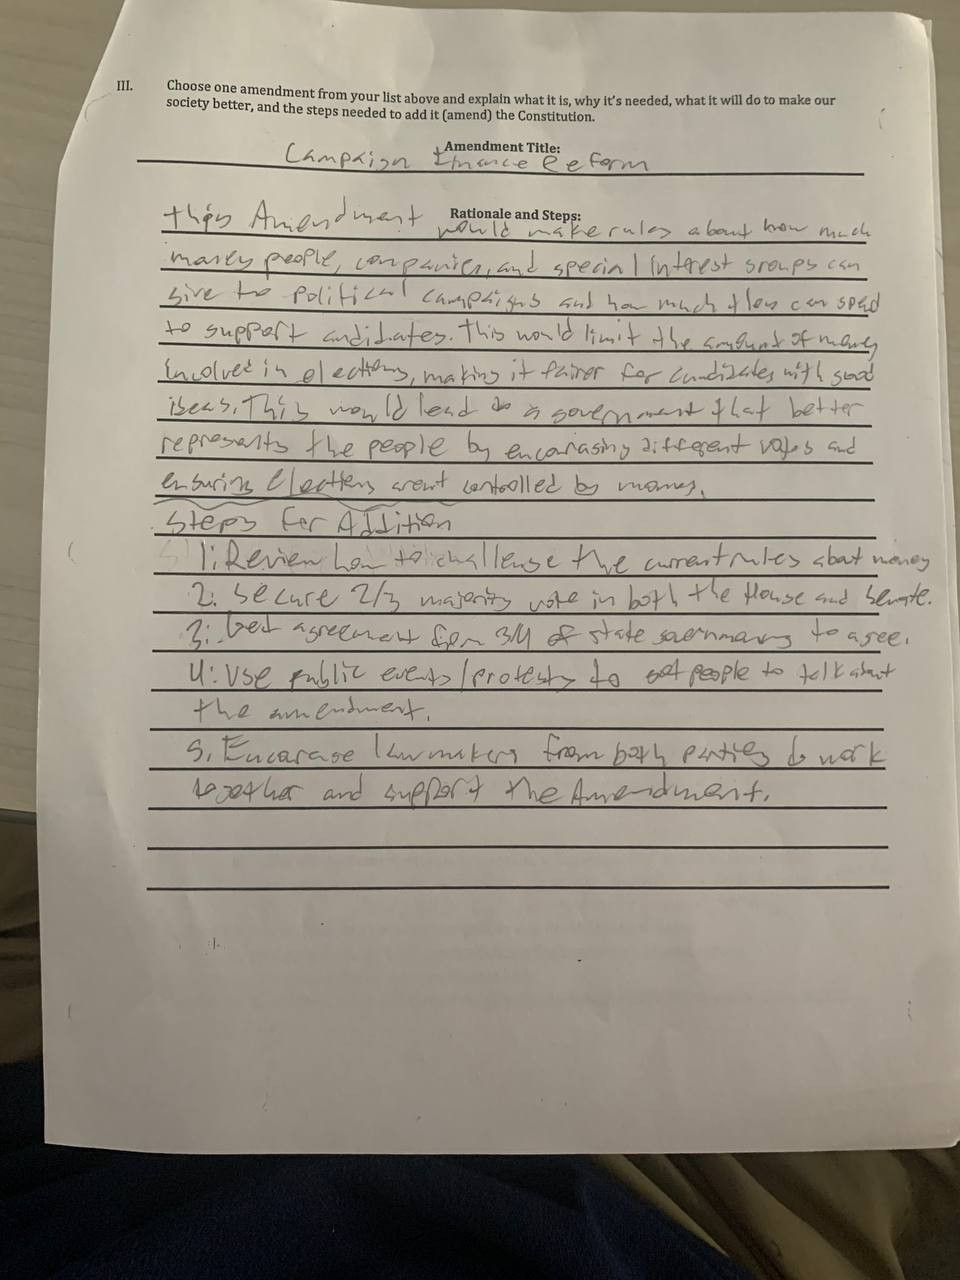 III. Choose one amendment from your list above and explain what it is, why it's needed, what it will do to make our
society better, and the steps needed to add it (amend) the Constitution.
Amendment Title:
Campaign Finance Reform
Rationale and Steps:
this Amendment would make rules about how much
money people, companies, and special Interest groups can
give to Political campaigns and how much they can spend
to support candidates. This would limit the amount of money
involved in elections, making it fairer for candidates with good
ideas. This would lead to a government that better
represents the people by encouraging different voices and
ensuring Elections arent controlled by money.
Steps for Addition
1: Review how to challenge the current rules about money
2: Secure 2/3 majority vote in both the House and Senate.
3: Get agreement from 3/4 of state governments to agree.
4: Use public events/protests to get people to talk about
the amendment.
5. Encourage lawmakers from both parties to work
together and support the Amendment.